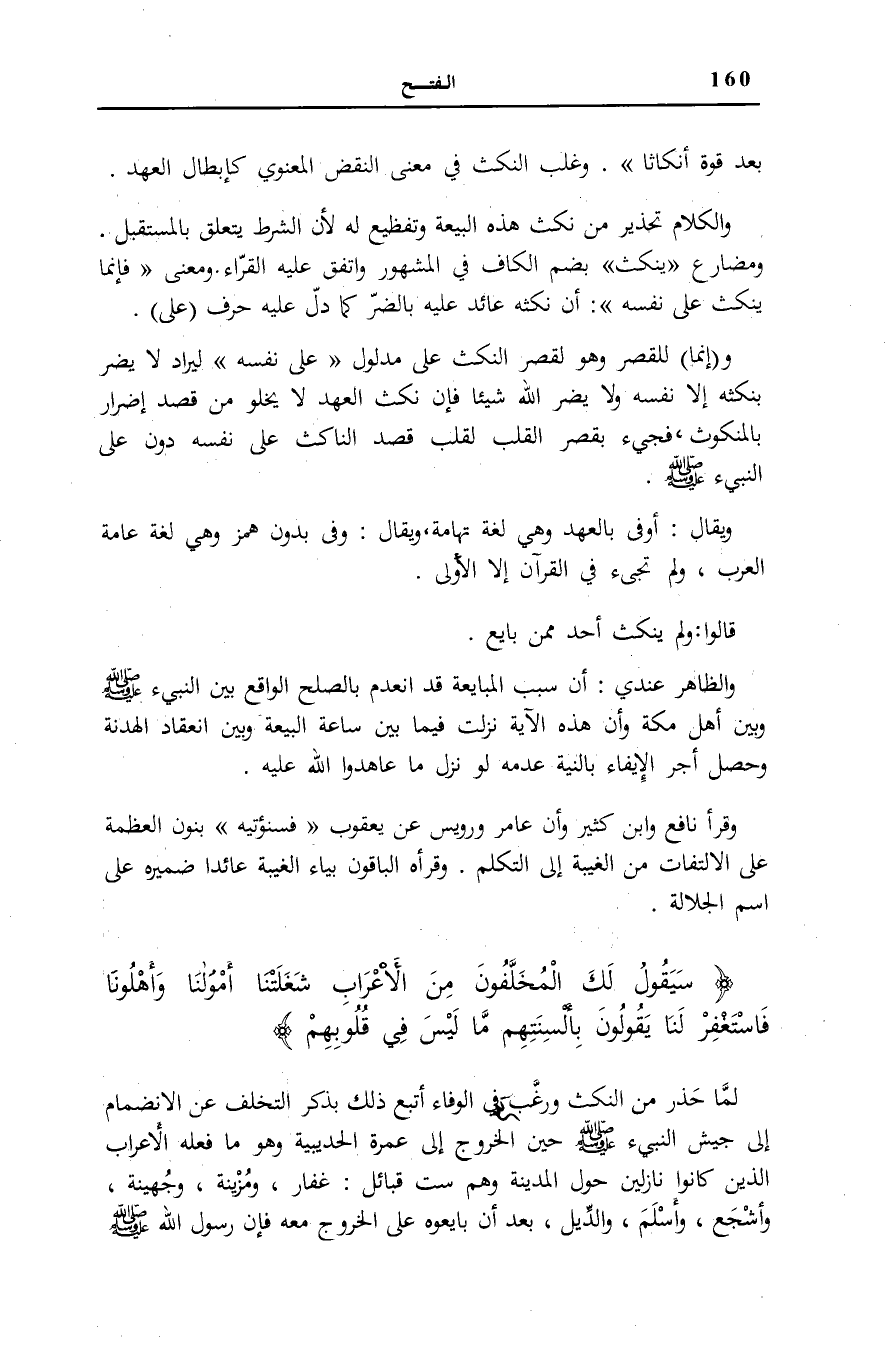 160
الفتـــح
بعد قوة أنكاثا » . وغلب النكث في معنى النقض المعنوي كإبطال العهد .
والكلام تحذير من نكث هذه البيعة وتفظيع له لأن الشرط يتعلق بالمستقبل .
ومضارع «ينكث» بضم الكاف في المشهور واتفق عليه القرّاء.ومعنى « فإنما
ينكث على نفسه »: أن نكثه عائد عليه بالضرّ كما دلّ عليه حرف (على) .
و(إنما) للقصر وهو لقصر النكث على مدلول « على نفسه » ليراد لا يضر
بنكثه إلا نفسه ولا يضر الله شيئا فإن نكث العهد لا يخلو من قصد إضرار
بالمنكوث، فجيء بقصر القلب لقلب قصد الناكث على نفسه دون على
النبيء ﷺ .
ويقال : أوفى بالعهد وهي لغة تهامة،ويقال : وفى بدون همز وهي لغة عامة
العرب ، ولم تجىء في القرآن إلا الأولى .
قالوا:ولم ينكث أحد ممن بايع .
والظاهر عندي : أن سبب المبايعة قد انعدم بالصلح الواقع بين النبيء ﷺ
وبين أهل مكة وأن هذه الآية نزلت فيما بين ساعة البيعة وبين انعقاد الهدنة
وحصل أجر الإيفاء بالنية عدمه لو نزل ما عاهدوا الله عليه .
وقرأ نافع وابن كثير وأن عامر ورويس عن يعقوب « فسنؤتيه » بنون العظمة
على الالتفات من الغيبة إلى التكلم . وقرأه الباقون بياء الغيبة عائدا ضميره على
اسم الجلالة .
﴿ سَيَقُولُ لَكَ الْمُخَلَّفُونَ مِنَ الْأَعْرَابِ شَغَلَتْنَا أَمْوَٰلُنَا وَأَهْلُونَا
فَاسْتَغْفِرْ لَنَا يَقُولُونَ بِأَلْسِنَتِهِم مَّا لَيْسَ فِي قُلُوبِهِمْ ﴾
لمَّا حَذر من النكث ورغَّب في الوفاء أتبع ذلك بذكر التخلف عن الانضمام
إلى جيش النبيء ﷺ حين الخروج إلى عمرة الحديبية وهو ما فعله الأعراب
الذين كانوا نازلين حول المدينة وهم ست قبائل : غفار ، ومُزْينة ، وجُهينة ،
وأشْجَع ، وأَسْلَمَ ، والدِّيل ، بعد أن بايعوه على الخروج معه فإن رسول الله ﷺ